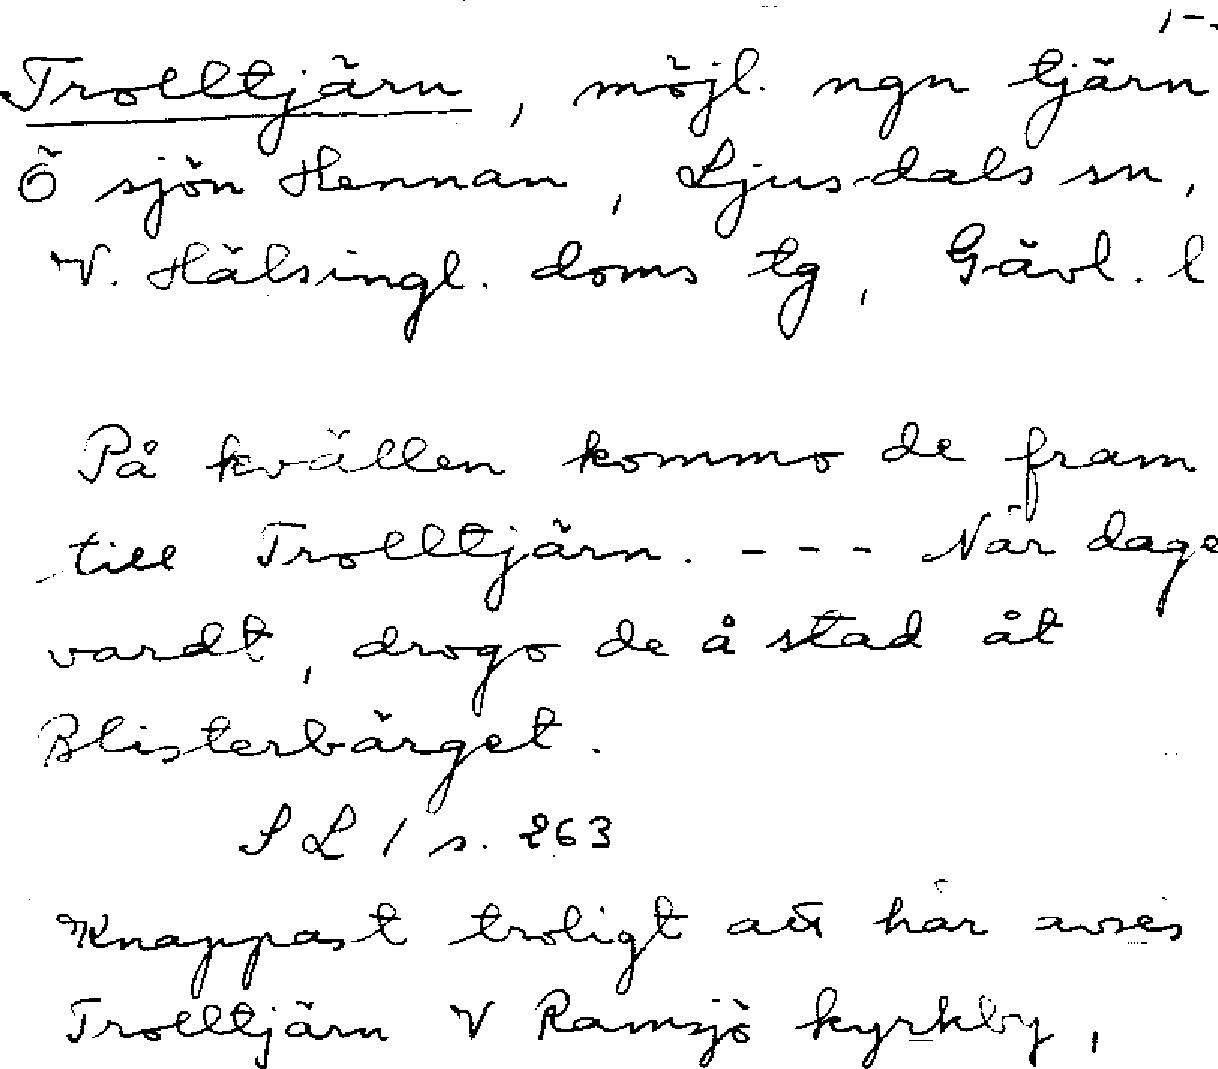 Trolltjärn, möjl. ngn tjärn
Ö sjön Hennan, Ljusdals sn,
V. Hälsingl. doms tg, Gävl. l
På kvällen kommo de fram
till Trolltjärn. - - - När dage
vardt, drogo de å stad åt
Blisterbärget.
SL 1 s. 263
Knappast troligt att här avses
Trolltjärn V Ramsjö kyrkby,